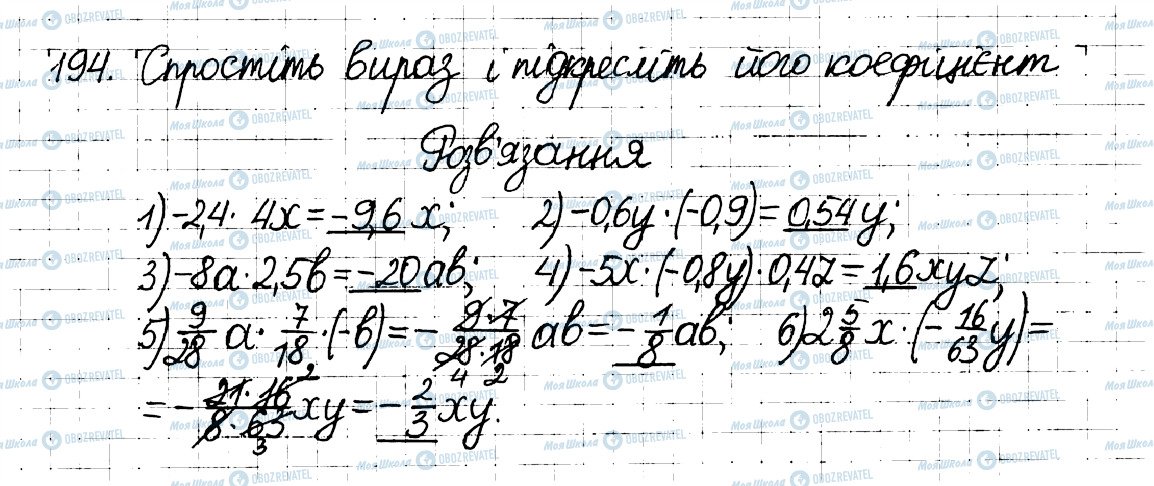 194. Спростіть вираз і підкресліть його коефіцієнт
Розв'язання
1) -2,4 · 4x = -9,6 x; 2) -0,6y · (-0,9) = 0,54 y;
3) -8a · 2,5b = -20 ab; 4) -5x · (-0,8y) · 0,4z = 1,6 xyz;
5) 9/28 a · 7/18 · (-b) = - 9·7/28·18 ab = - 1/8 ab; 6) 2 5/8 x · (- 16/63 y) =
= - 21·16/8·63 xy = - 2/3 xy.